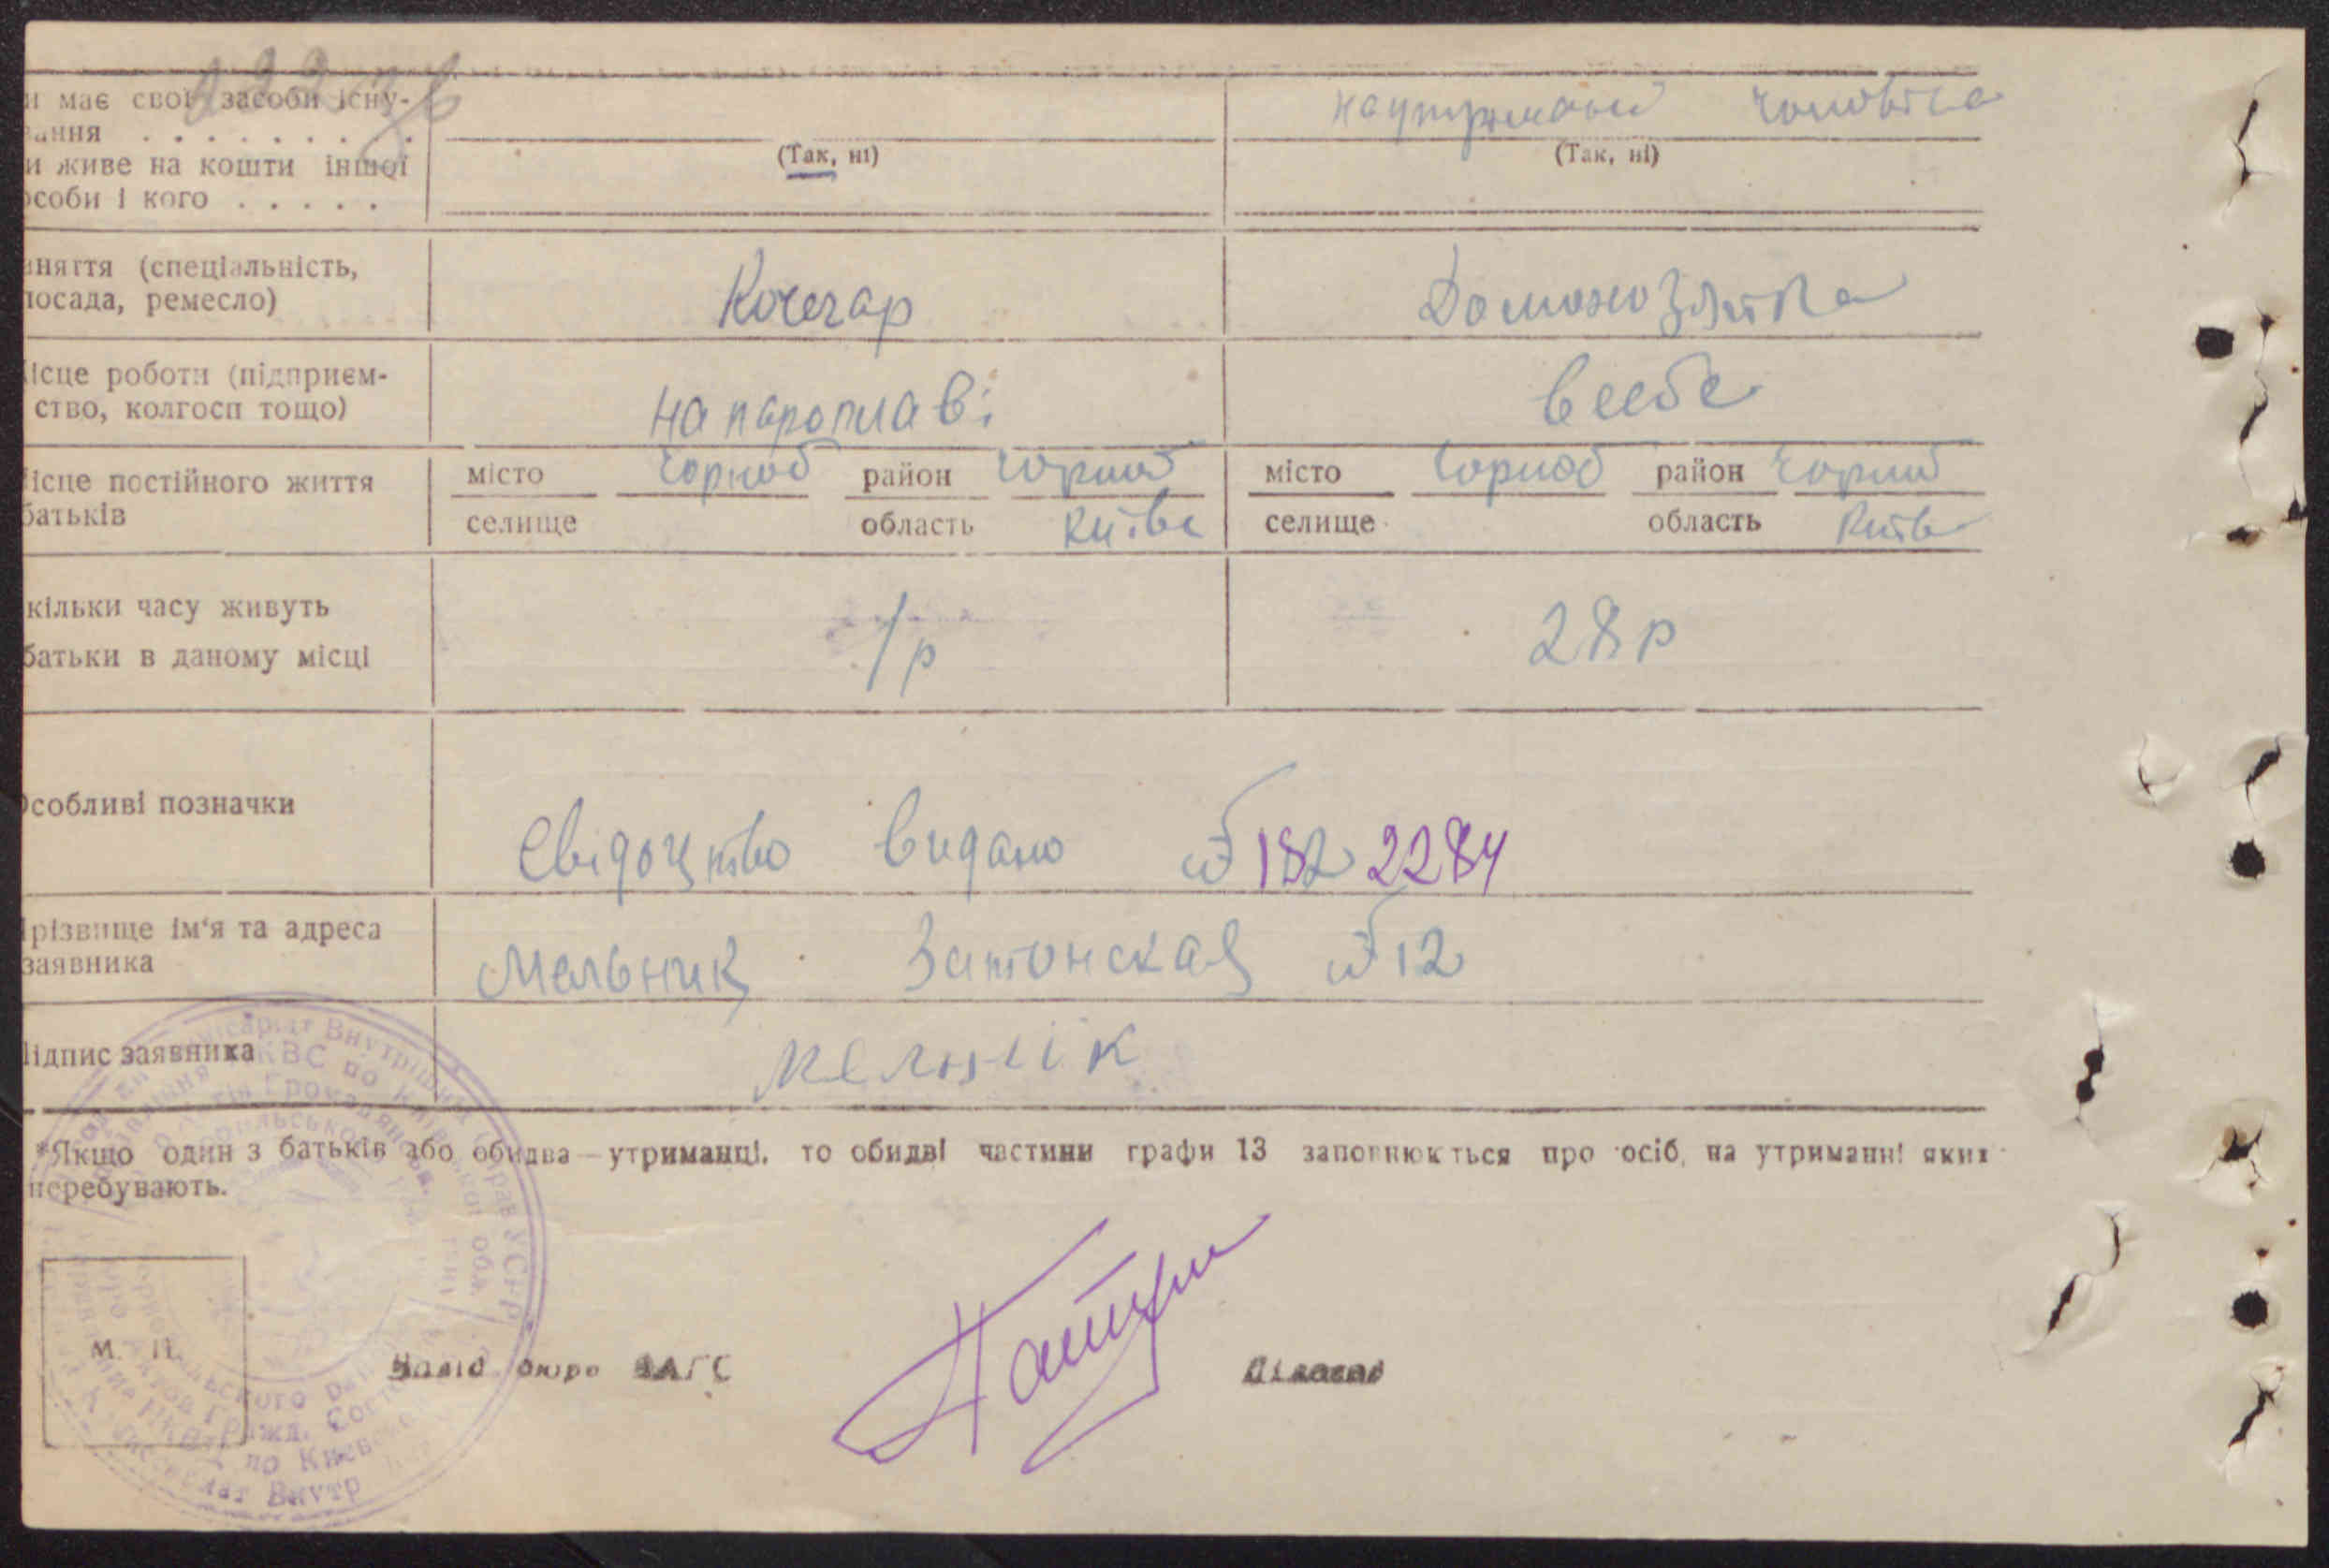 и має свої засоби існу-
вання . . . . . . . .
и живе на кошти іншої
особи і кого . . . . .
(Так, ні)
на утриманні чоловіка
(Так, ні)
аняття (спеціальність,
посада, ремесло)
Кочегар
Домохозяйка
ісце роботи (підприєм-
ство, колгосп тощо)
на пароплаві
в себе
ісце постійного життя
батьків
місто Чорноб район Чорноб
селище область Київс
місто Чорноб район Чорноб
селище область Київ
кільки часу живуть
батьки в даному місці
1 р
28 р
Особливі позначки
Свідоцтво видано № 182 2284
різвище ім'я та адреса
заявника
Мельник Затонская № 12
Підпис заявника
Мельнік
*Якщо один з батьків або обидва — утриманці, то обидві частини графи 13 заповнюються про осіб, на утриманні яких
перебувають.
М. П.
Завід бюро ЗАГС
Діловод